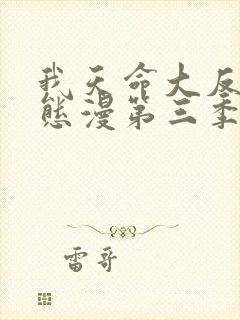 我天命大反
态漫第三季
雷哥